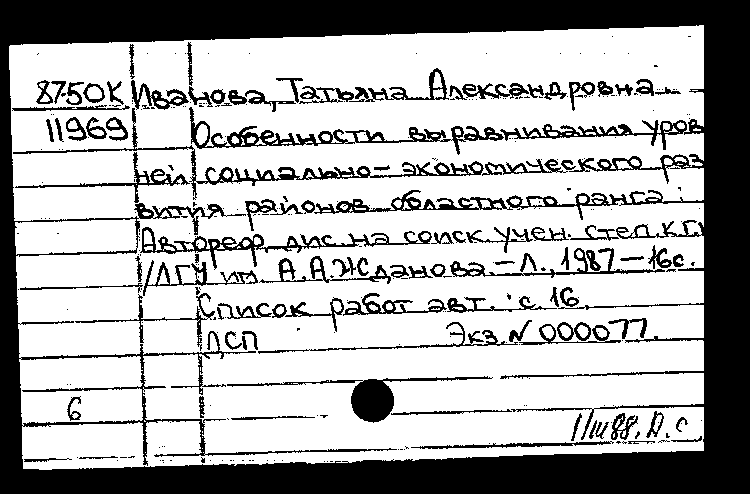 87-50К Иванова, Татьяна Александровна.
11969 Особенности выравнивания уров
ней социально-экономического раз
вития районов областного ранга:
Автореф. дис. на соиск. учен. степ. к.г.н
/ЛГУ им. А.А.Жданова.-Л., 1987-16с.
Список работ авт.: с. 16.
ДСП Экз. N 000077.
6